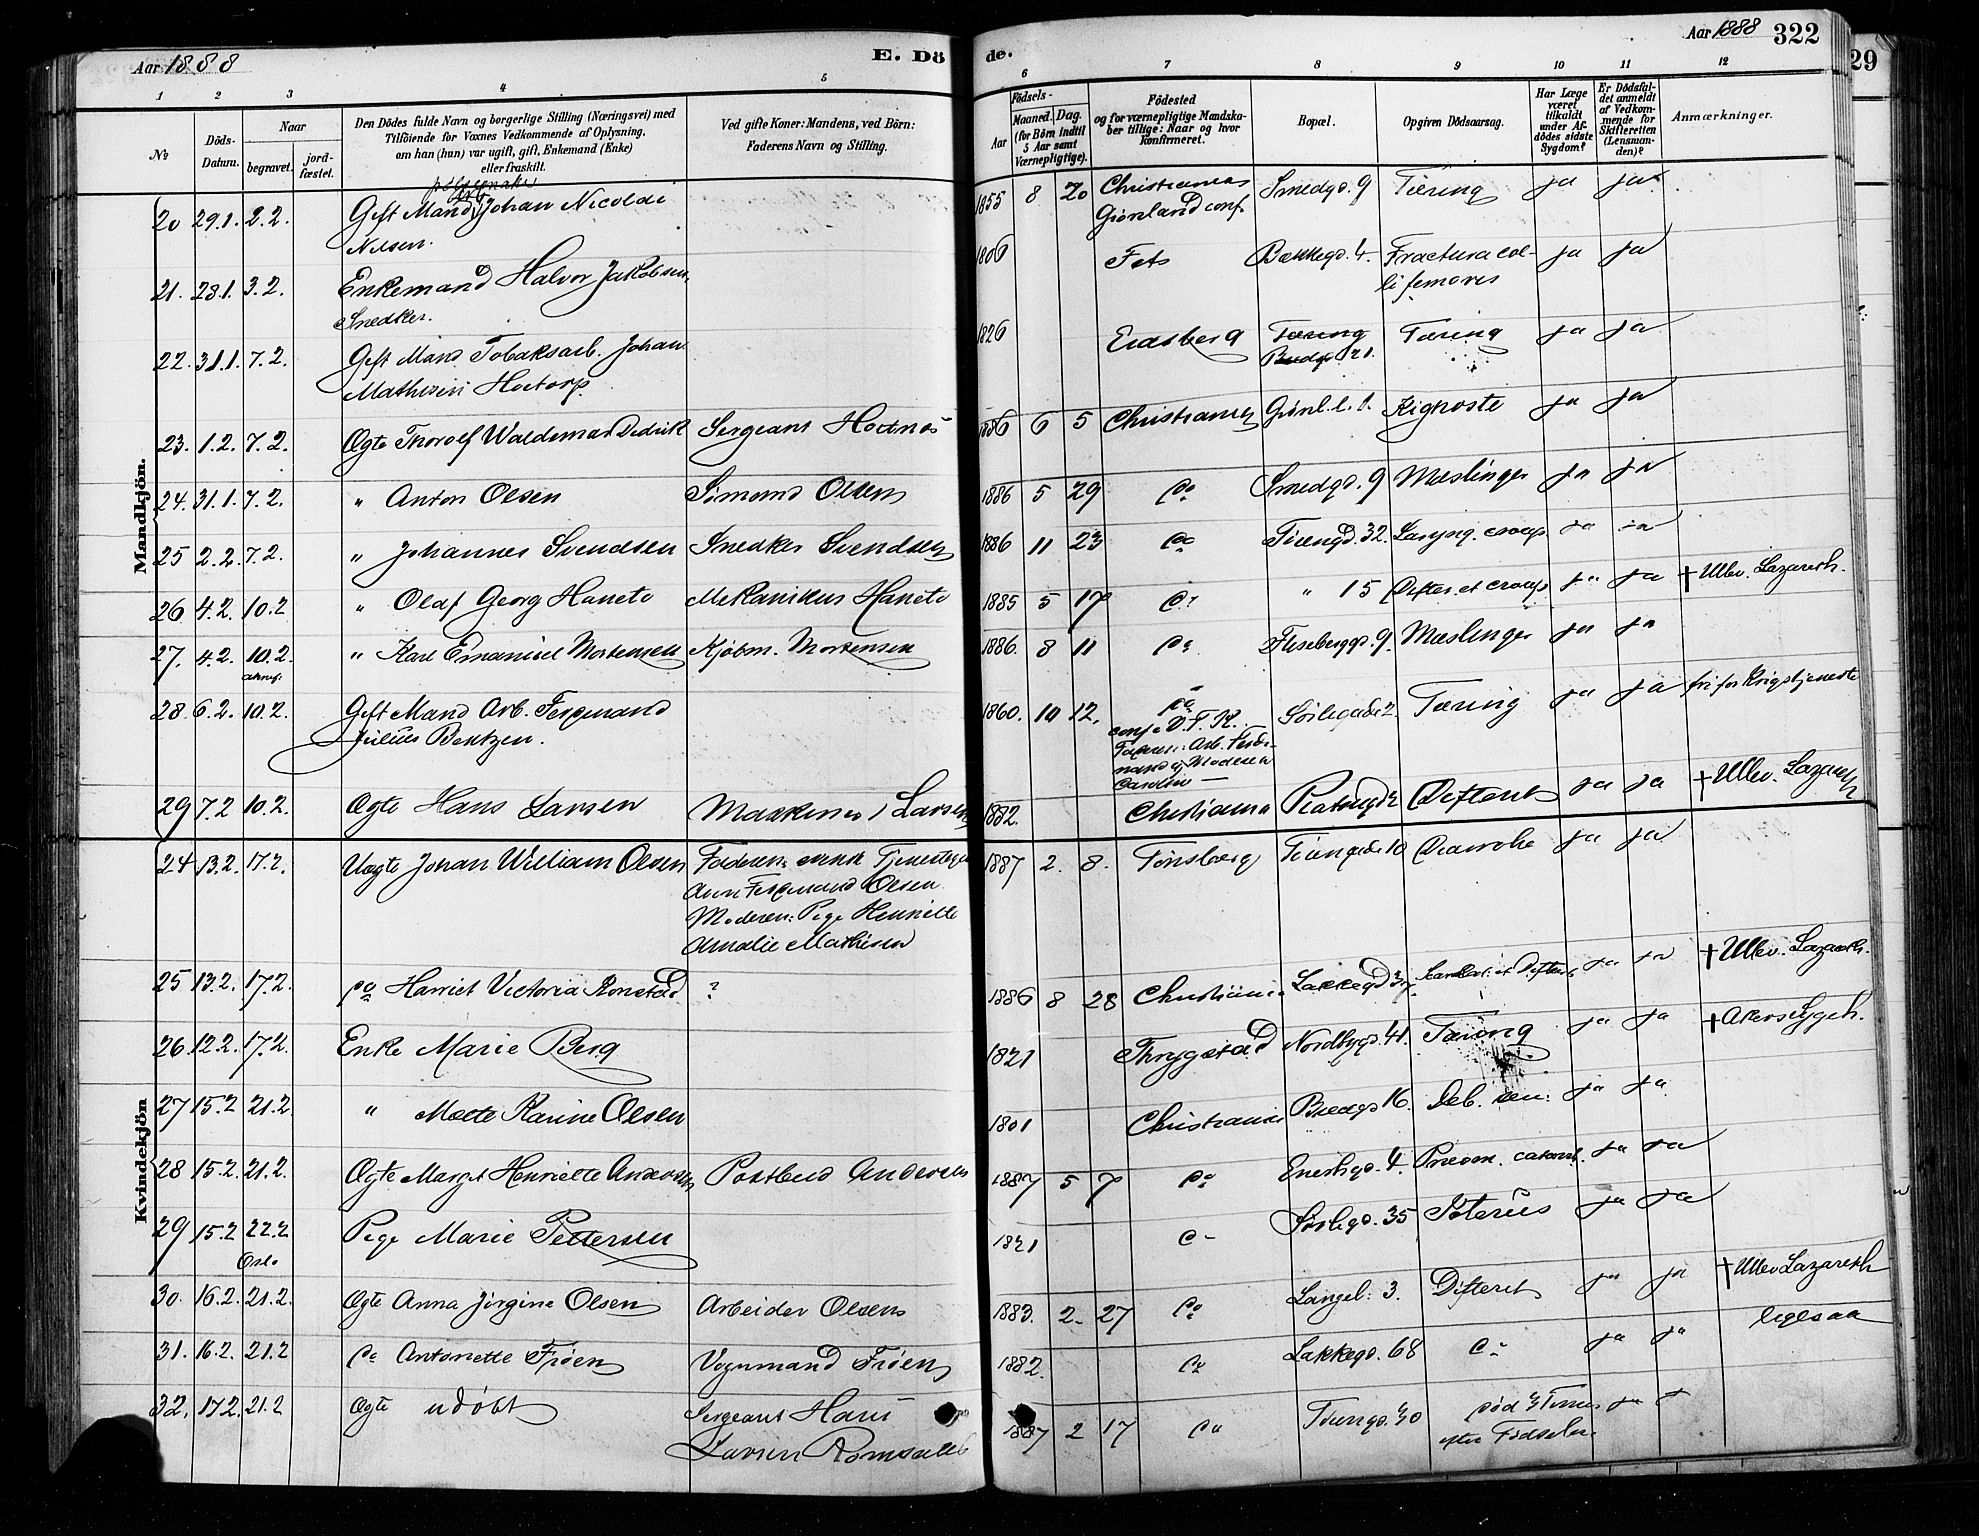 Aar 1888
E. Dö
1 2 3 4 5
№
Döds-
Datum.
Naar
begravet.
jord-
fæstet.
Den Dödes fulde Navn og borgerlige Stilling (Næringsvei) med
Tilföiende for Voxnes Vedkommende af Oplysning,
om han (hun) var ugift, gift, Enkemand (Enke)
eller fraskilt.
Ved gifte Koner: Mandens, ved Börn:
Faderens Navn og Stilling.
Mandkjön.
20 29.1. 2.2. Gift Mand Johan Nicolai
Nilsen.
21. 28.1. 3.2. Enkemand Halvor Jakobsen,
Snedker.
22. 31.1. 7.2. Gift Mand Tobaksarb. Johan
Mathisen
23. 1.2. 7.2. Ægte Thorolf Waldemar Didrik Sergeant
24. 31.1. 7.2. " Anton Olsen Simond Olsen
25 2.2. 7.2. " Johannes Svendsen Snedker Svendsen
26 4.2. 10.2 " Olaf Georg Mekanikus
27. 4.2. 10.2. " Karl Emanuel Mortensen Kjøbm. Mortensen
28. 6.2. 10.2. Gift Mand Arb. Ferdinand
Julius Bentzen.
29 7.2 10.2. Ægte Hans Larsen Maskinist Larsen
Kvindekjön
24 13.2. 17.2. Uægte Johan William Olsen Faderen:
Ferdinand Olsen
Moderen: Pige
Amalie Mathisen
25 13.2. 17.2. do Harriet Victoria ?
26 12.2. 17.2. Enke Marie Berg
27 15.2 21.2 " Mette Karine Olsen
28 15.2 21.2. Ægte Margit Henriette Andersen Postbud Andersen
29 15.2 22.2 Pige Marie Pettersen
Oslo
30. 16.2. 21.2. Ægte Anna Jørgine Olsen Arbeider Olsen
31. 16.2. 21.2 do Antonette Frøen Vognmand Frøen
32. 17.2. 21.2 Ægte udøbt Sergeant Hans
Larsen
de.
Aar 1888 322
29
6 7 8 9 10 11 12
Aar
Födsels-
Maaned. Dag.
(for Börn indtil
5 Aar samt
Værnepligtige).
Födested
og for værnepligtige Mandska-
ber tillige: Naar og hvor
konfirmeret.
Bopæl.
Opgiven Dödsaarsag.
Har Læge
været
tilkaldt
under Af-
dödes sidste
Sygdom?
Er Dödsfal-
det anmeldt
af Vedkom-
mende for
Skifteretten
(Lensman-
den)?
Anmærkninger.
1855 8 20 Christiania Smedgd. 9 Tæring ja ja
Grønland conf.
1806 Fets Bakkegd. 4. Fractura col- ja ja
li femoris
1826 Eidsberg Tæring Tæring ja ja
21.
1886 6 5 Christiania Grønl. l. 1. ja ja
1886 5 29 do Smedgd. 9 Mæslinger ja ja
1886 11 23 do Tøiengd. 32. Laryng. croup ja ja
1885 5 17 do " 15 Difter. et croup ja ja † Ullev. Lazareth.
1886. 8 11 do Flisberggd. 9 Mæslinger ja ja
1860. 10 12. do Sørligade 2 Tæring ja ja fri for Krigstjeneste
conf. D. F. K.
Faderen: Arb. Ferdi-
nand og Moderen
Caroline
1882. Christiania Difterit ja ja † Ullev. Lazareth
1887 2. 8. Tønsberg Tøiengade 10 Diarrohe ja ja
1886 8 28 Christiania Lakkegd ja ja † Ullev. Lazareth.
1821 Thrygstad Nordbygd. 41. Tæring ja ja † Akers Sygeh.
1801 Christiania Bredgd 16. Deb. sen. ja ja
1887 5 7 do Enerhgd. 4. Pneum. catarrh. ja ja
1821 do Sørligd. 35 Icterus ja ja
1883. 2. 27 do Langel: 3. Difterit ja ja † Ullev Lazareth
1882. do Lakkegd. 68 do ja ja ligesaa
1887 2 17 do Tøiengd. 30
efter Fødselen